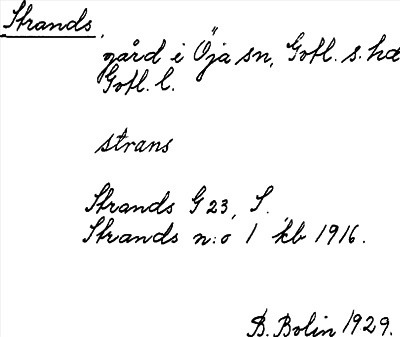 Strands,
gård i Öja sn, Gotl. s. hd
Gotl. l.
strans
Strands G 23, S.
Strands n:o 1 kb 1916.
B. Bolin 1929.